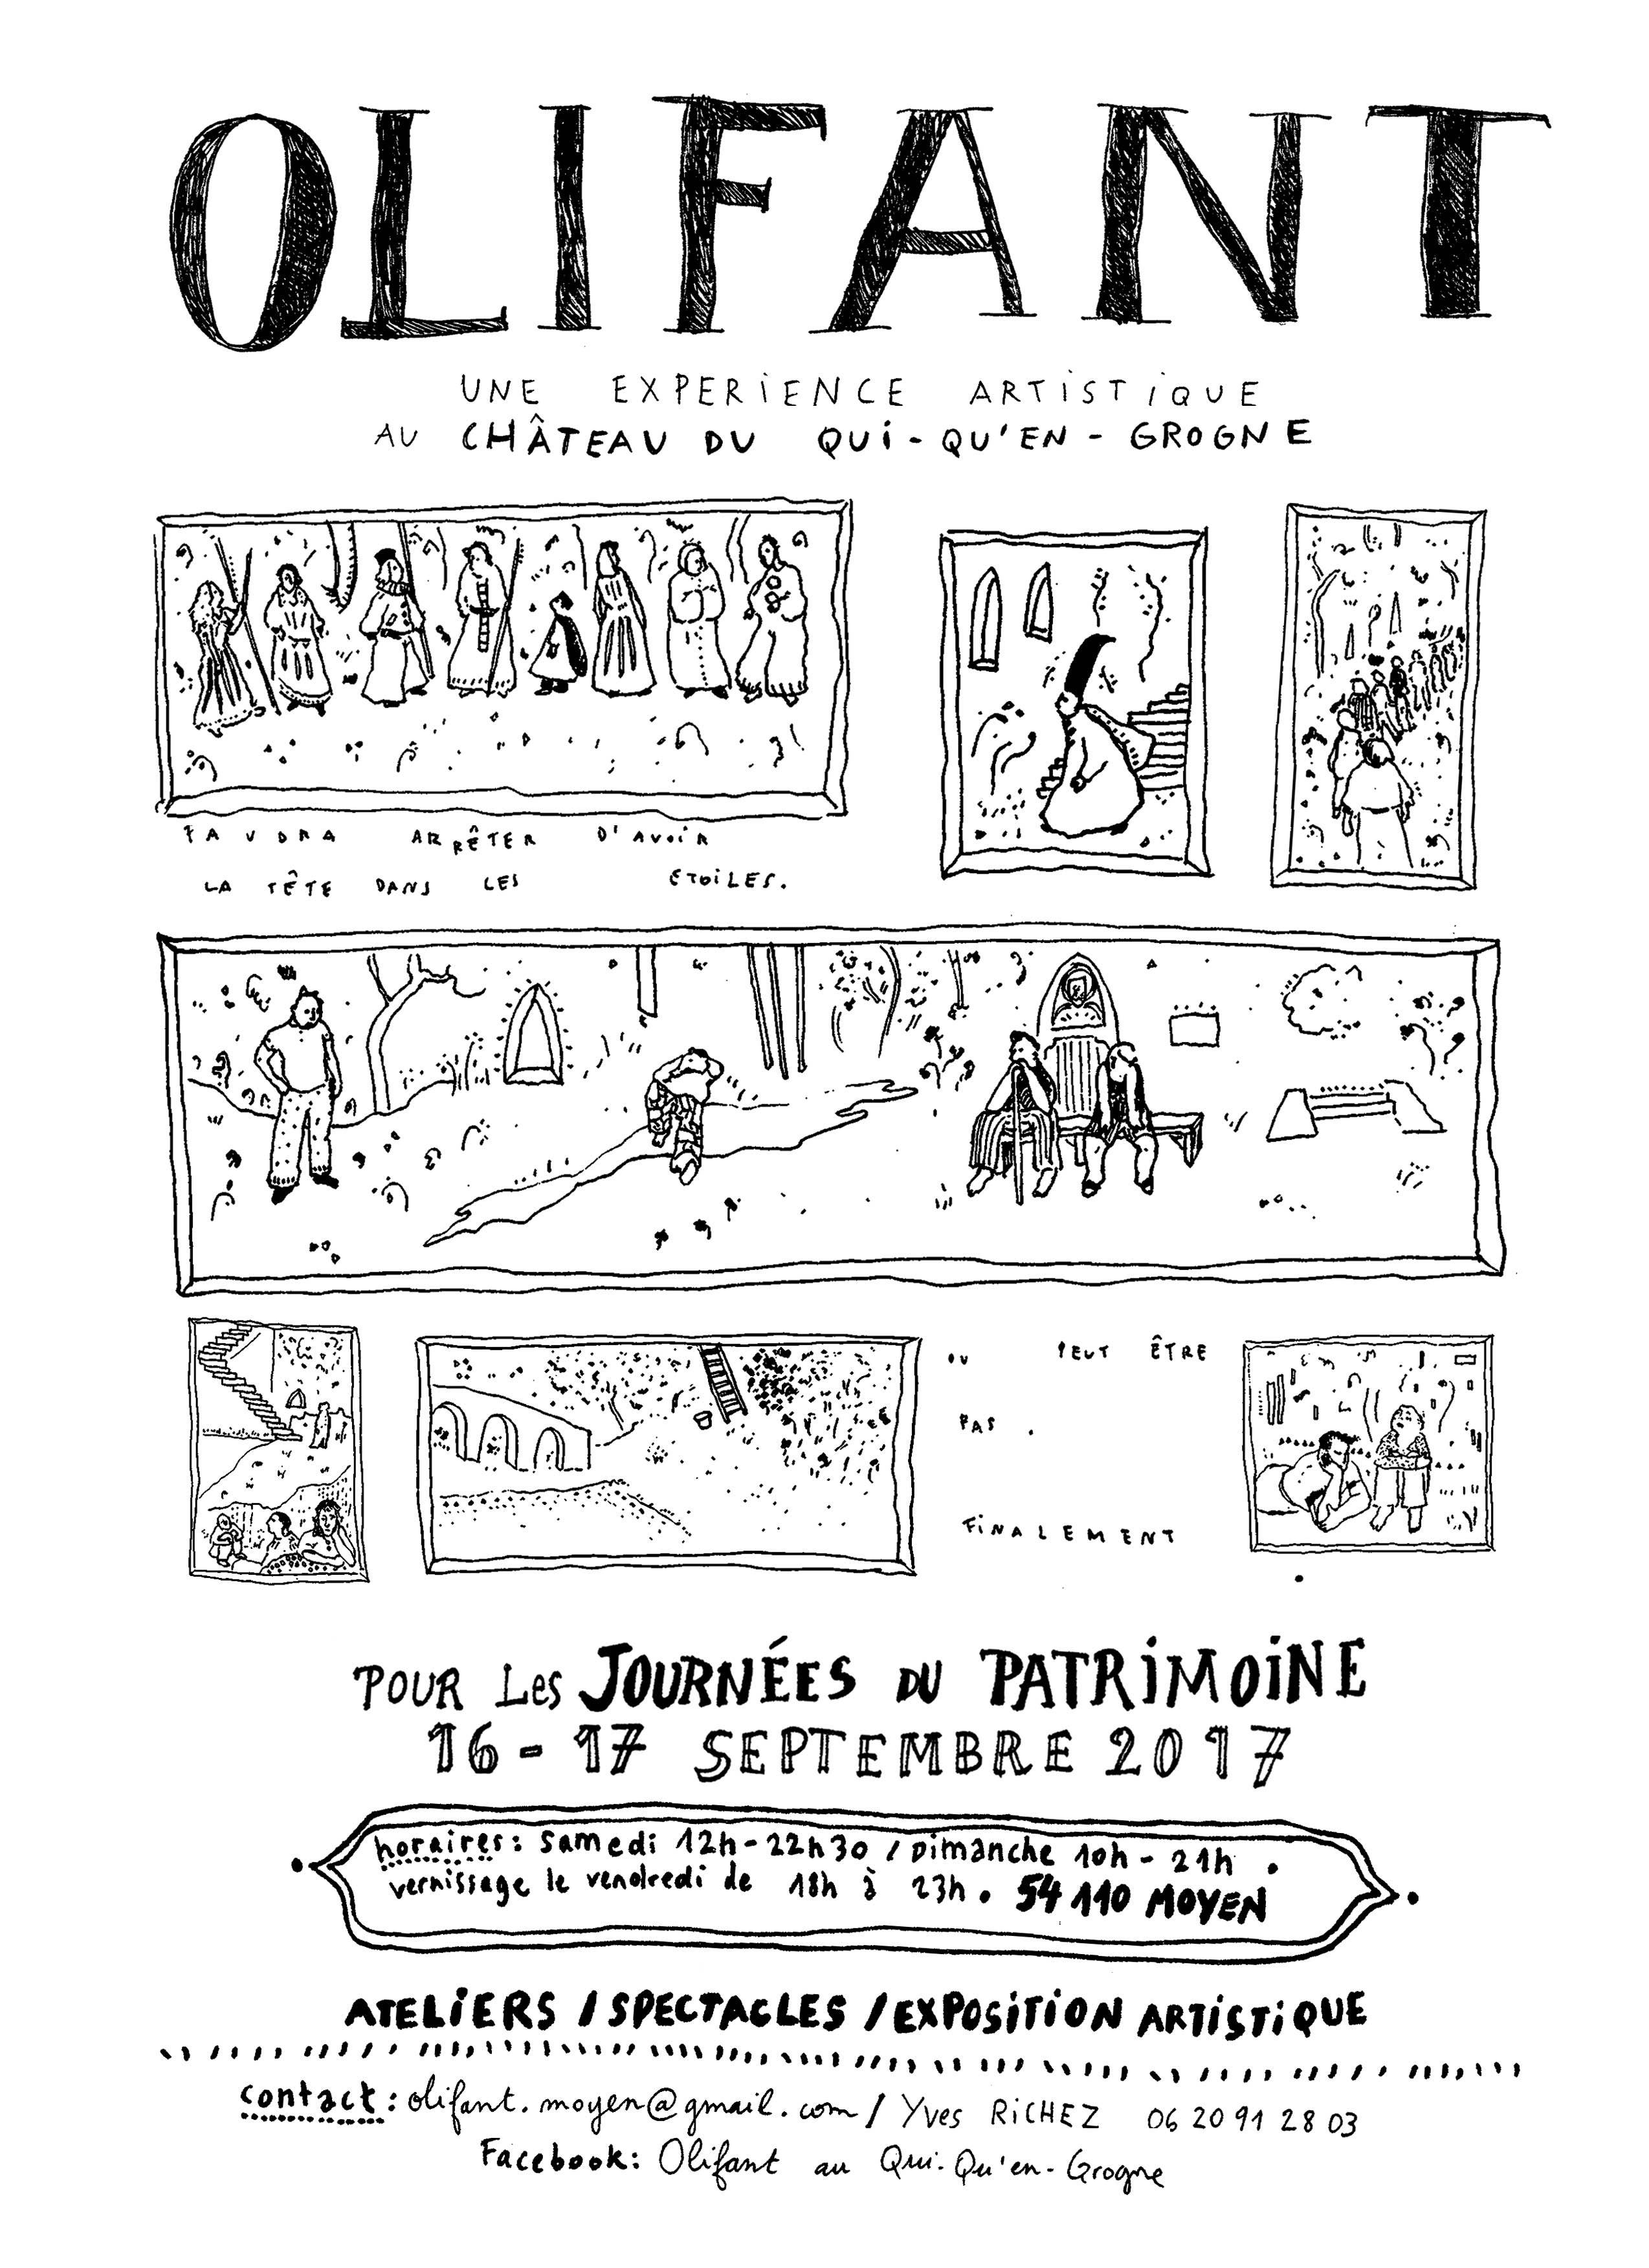 OLIFANT
UNE EXPERIENCE ARTISTIQUE
AU CHÂTEAU DU QUI-QU'EN-GROGNE
FAUDRA ARRÊTER D'AVOIR
LA TÊTE DANS LES ETOILES.
OU PEUT ÊTRE
PAS.
FINALEMENT
POUR Les JOURNÉES DU PATRIMOINE
16-17 SEPTEMBRE 2017
horaires: samedi 12h-22h30 / Dimanche 10h-21h.
vernissage le vendredi de 18h à 23h. 54110 MOYEN
ATELIERS / SPECTACLES / EXPOSITION ARTISTIQUE
contact: olifant.moyen@gmail.com / Yves RICHEZ 06 20 91 28 03
Facebook: Olifant au Qui-Qu'en-Grogne